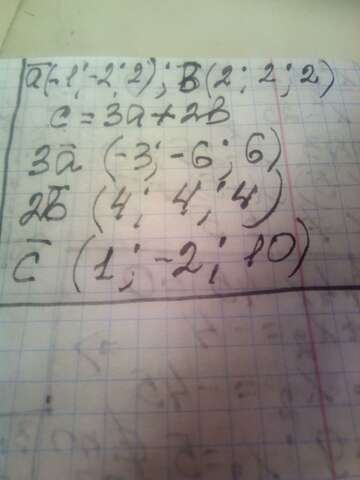 a̅(-1; -2; 2); b̅(2; 2; 2)
c = 3a + 2b
3a̅ (-3; -6; 6)
2b̅ (4; 4; 4)
c̅ (1; -2; 10)